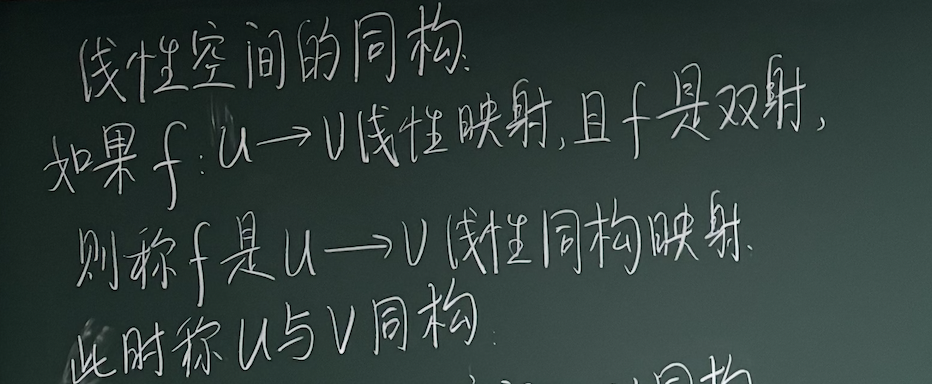 线性空间的同构.
如果f:U→V线性映射,且f是双射,
则称f是U→V线性同构映射.
此时称U与V同构.
同构